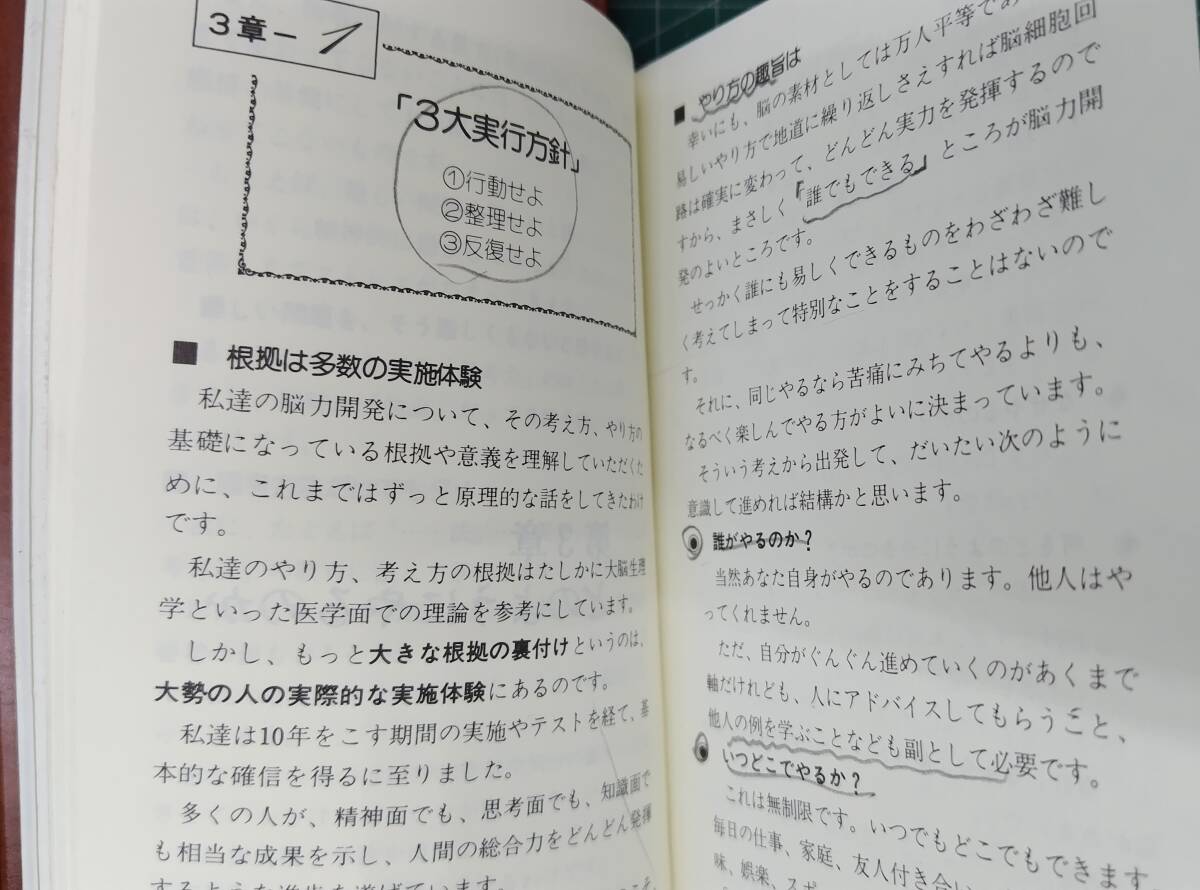 3章－1
「3大実行方針」
①行動せよ
②整理せよ
③反復せよ
■ 根拠は多数の実施体験
私達の脳力開発について、その考え方、やり方の
基礎になっている根拠や意義を理解していただくた
めに、これまではずっと原理的な話をしてきたわけ
です。
私達のやり方、考え方の根拠はたしかに大脳生理
学といった医学面での理論を参考にしています。
しかし、もっと大きな根拠の裏付けというのは、
大勢の人の実際的な実施体験にあるのです。
私達は10年をこす期間の実施やテストを経て、基
本的な確信を得るに至りました。
多くの人が、精神面でも、思考面でも、知識面で
も相当な成果を示し、人間の総合力をどんどん発揮
するような進歩を遂げています。
■ やり方の趣旨は
幸いにも、脳の素材としては万人平等であ
易しいやり方で地道に繰り返しさえすれば脳細胞回
路は確実に変わって、どんどん実力を発揮するので
すから、まさしく「誰でもできる」ところが脳力開
発のよいところです。
せっかく誰にも易しくできるものをわざわざ難し
く考えてしまって特別なことをすることはないので
す。
それに、同じやるなら苦痛にみちてやるよりも、
なるべく楽しんでやる方がよいに決まっています。
そういう考えから出発して、だいたい次のように
意識して進めれば結構かと思います。
誰がやるのか？
当然あなた自身がやるのであります。他人はや
ってくれません。
ただ、自分がぐんぐん進めていくのがあくまで
軸だけれども、人にアドバイスしてもらうこと、
他人の例を学ぶことなども副として必要です。
いつどこでやるか？
これは無制限です。いつでもどこでもできます
毎日の仕事、家庭、友人付き合い
味、娯楽、スポ